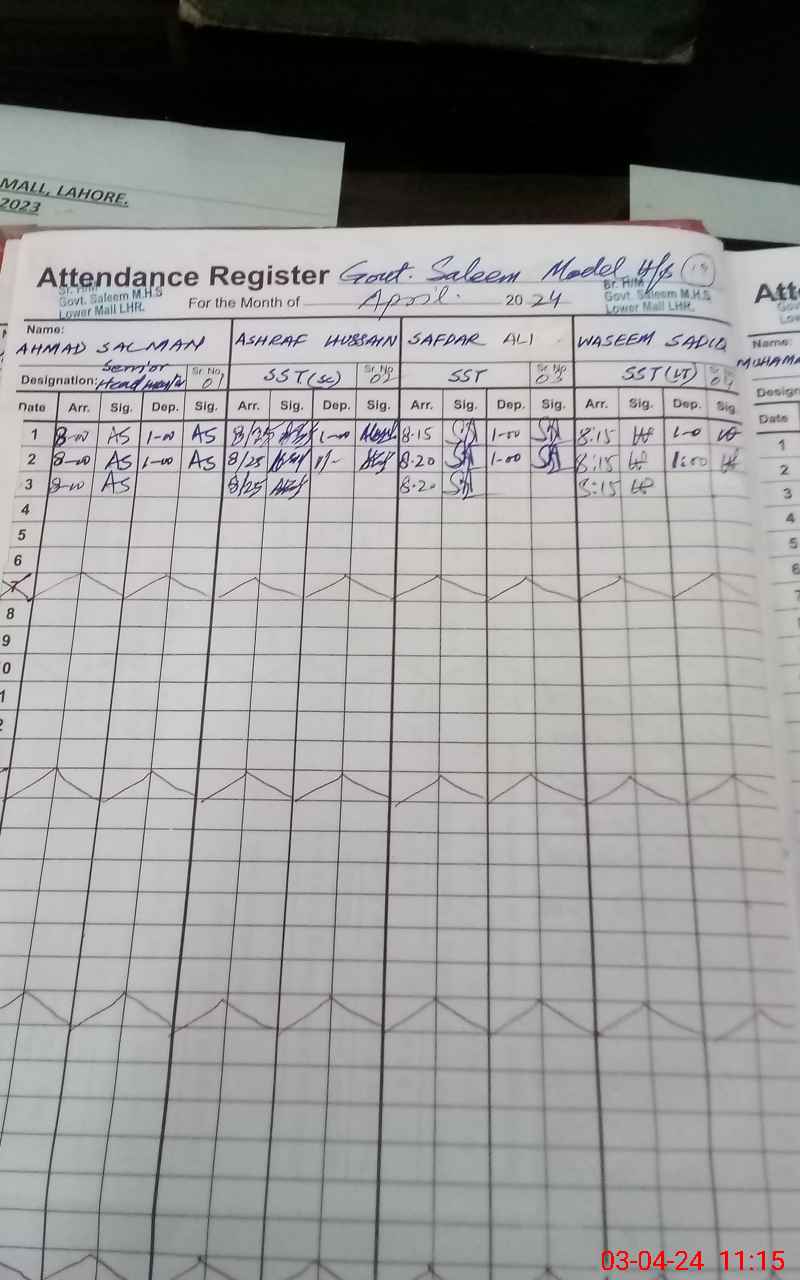 MALL, LAHORE.
2023
Attendance Register Govt. Saleem Model H/S 19
Sr. H/M
Govt. Saleem M.H.S
Lower Mall LHR.
For the Month of April. 2024
Sr. H/M
Govt. Saleem M.H.S
Lower Mall LHR.
Name: AHMAD SALMAN ASHRAF HUSSAIN SAFDAR ALI WASEEM SADIQ
Designation: Senior Headmaster Sr No. 01 SST (SC) Sr No 02 SST Sr No 03 SST (IT) Sr No 04
Date Arr. Sig. Dep. Sig. Arr. Sig. Dep. Sig. Arr. Sig. Dep. Sig. Arr. Sig. Dep. Sig.
1 8-00 AS 1-00 AS 8/25 1-00 8-15 SA 1-00 SA 8:15 1-0
2 8-00 AS 1-00 AS 8/25 1/- 8-20 SA 1-00 SA 8:15 1:00
3 8-00 AS 8/25 8-20 SA 8:15
4
5
6
7
8
9
0
1
2
Att
Name:
MUHAMA
Design
Date
1
2
3
4
5
6
7
03-04-24 11:15